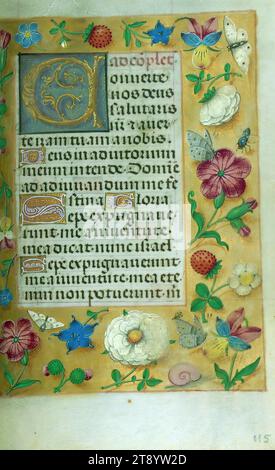 ad cõplet
Conuerte
nos deus
salutaris
nr̃ et auer
te iram tuam a nobis.
Deus in adiutorium
meum intende Domine
ad adiuuandum me fe
stina Gloria
Sepe expugnaue
runt me a iuuentute
mea dicat nunc israel
Sepe expugnauerunt
me a iuuentute mea ete
nim non potuerunt m
115